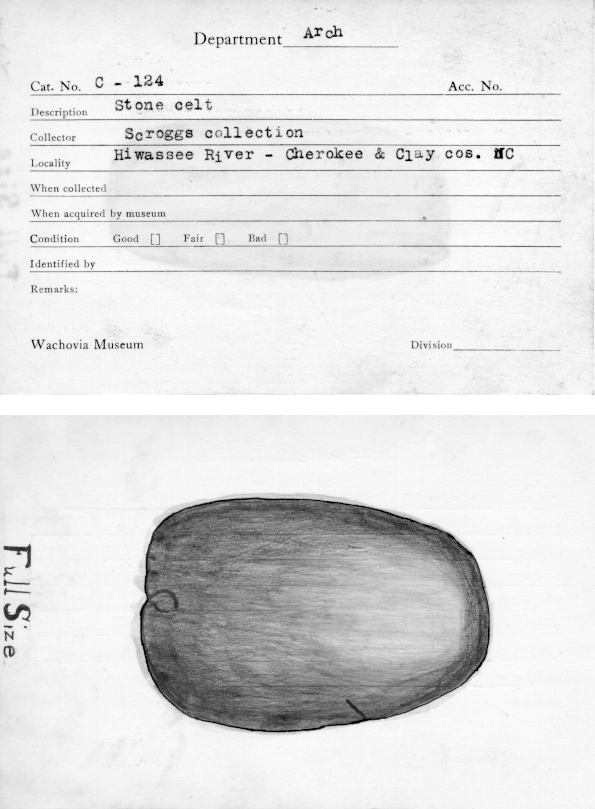 Department Arch
Cat. No. C - 124 Acc. No.
Description Stone celt
Collector Scroggs collection
Locality Hiwassee River - Cherokee & Clay cos. NC
When collected
When acquired by museum
Condition Good [] Fair [] Bad []
Identified by
Remarks:
Wachovia Museum Division
Full Size